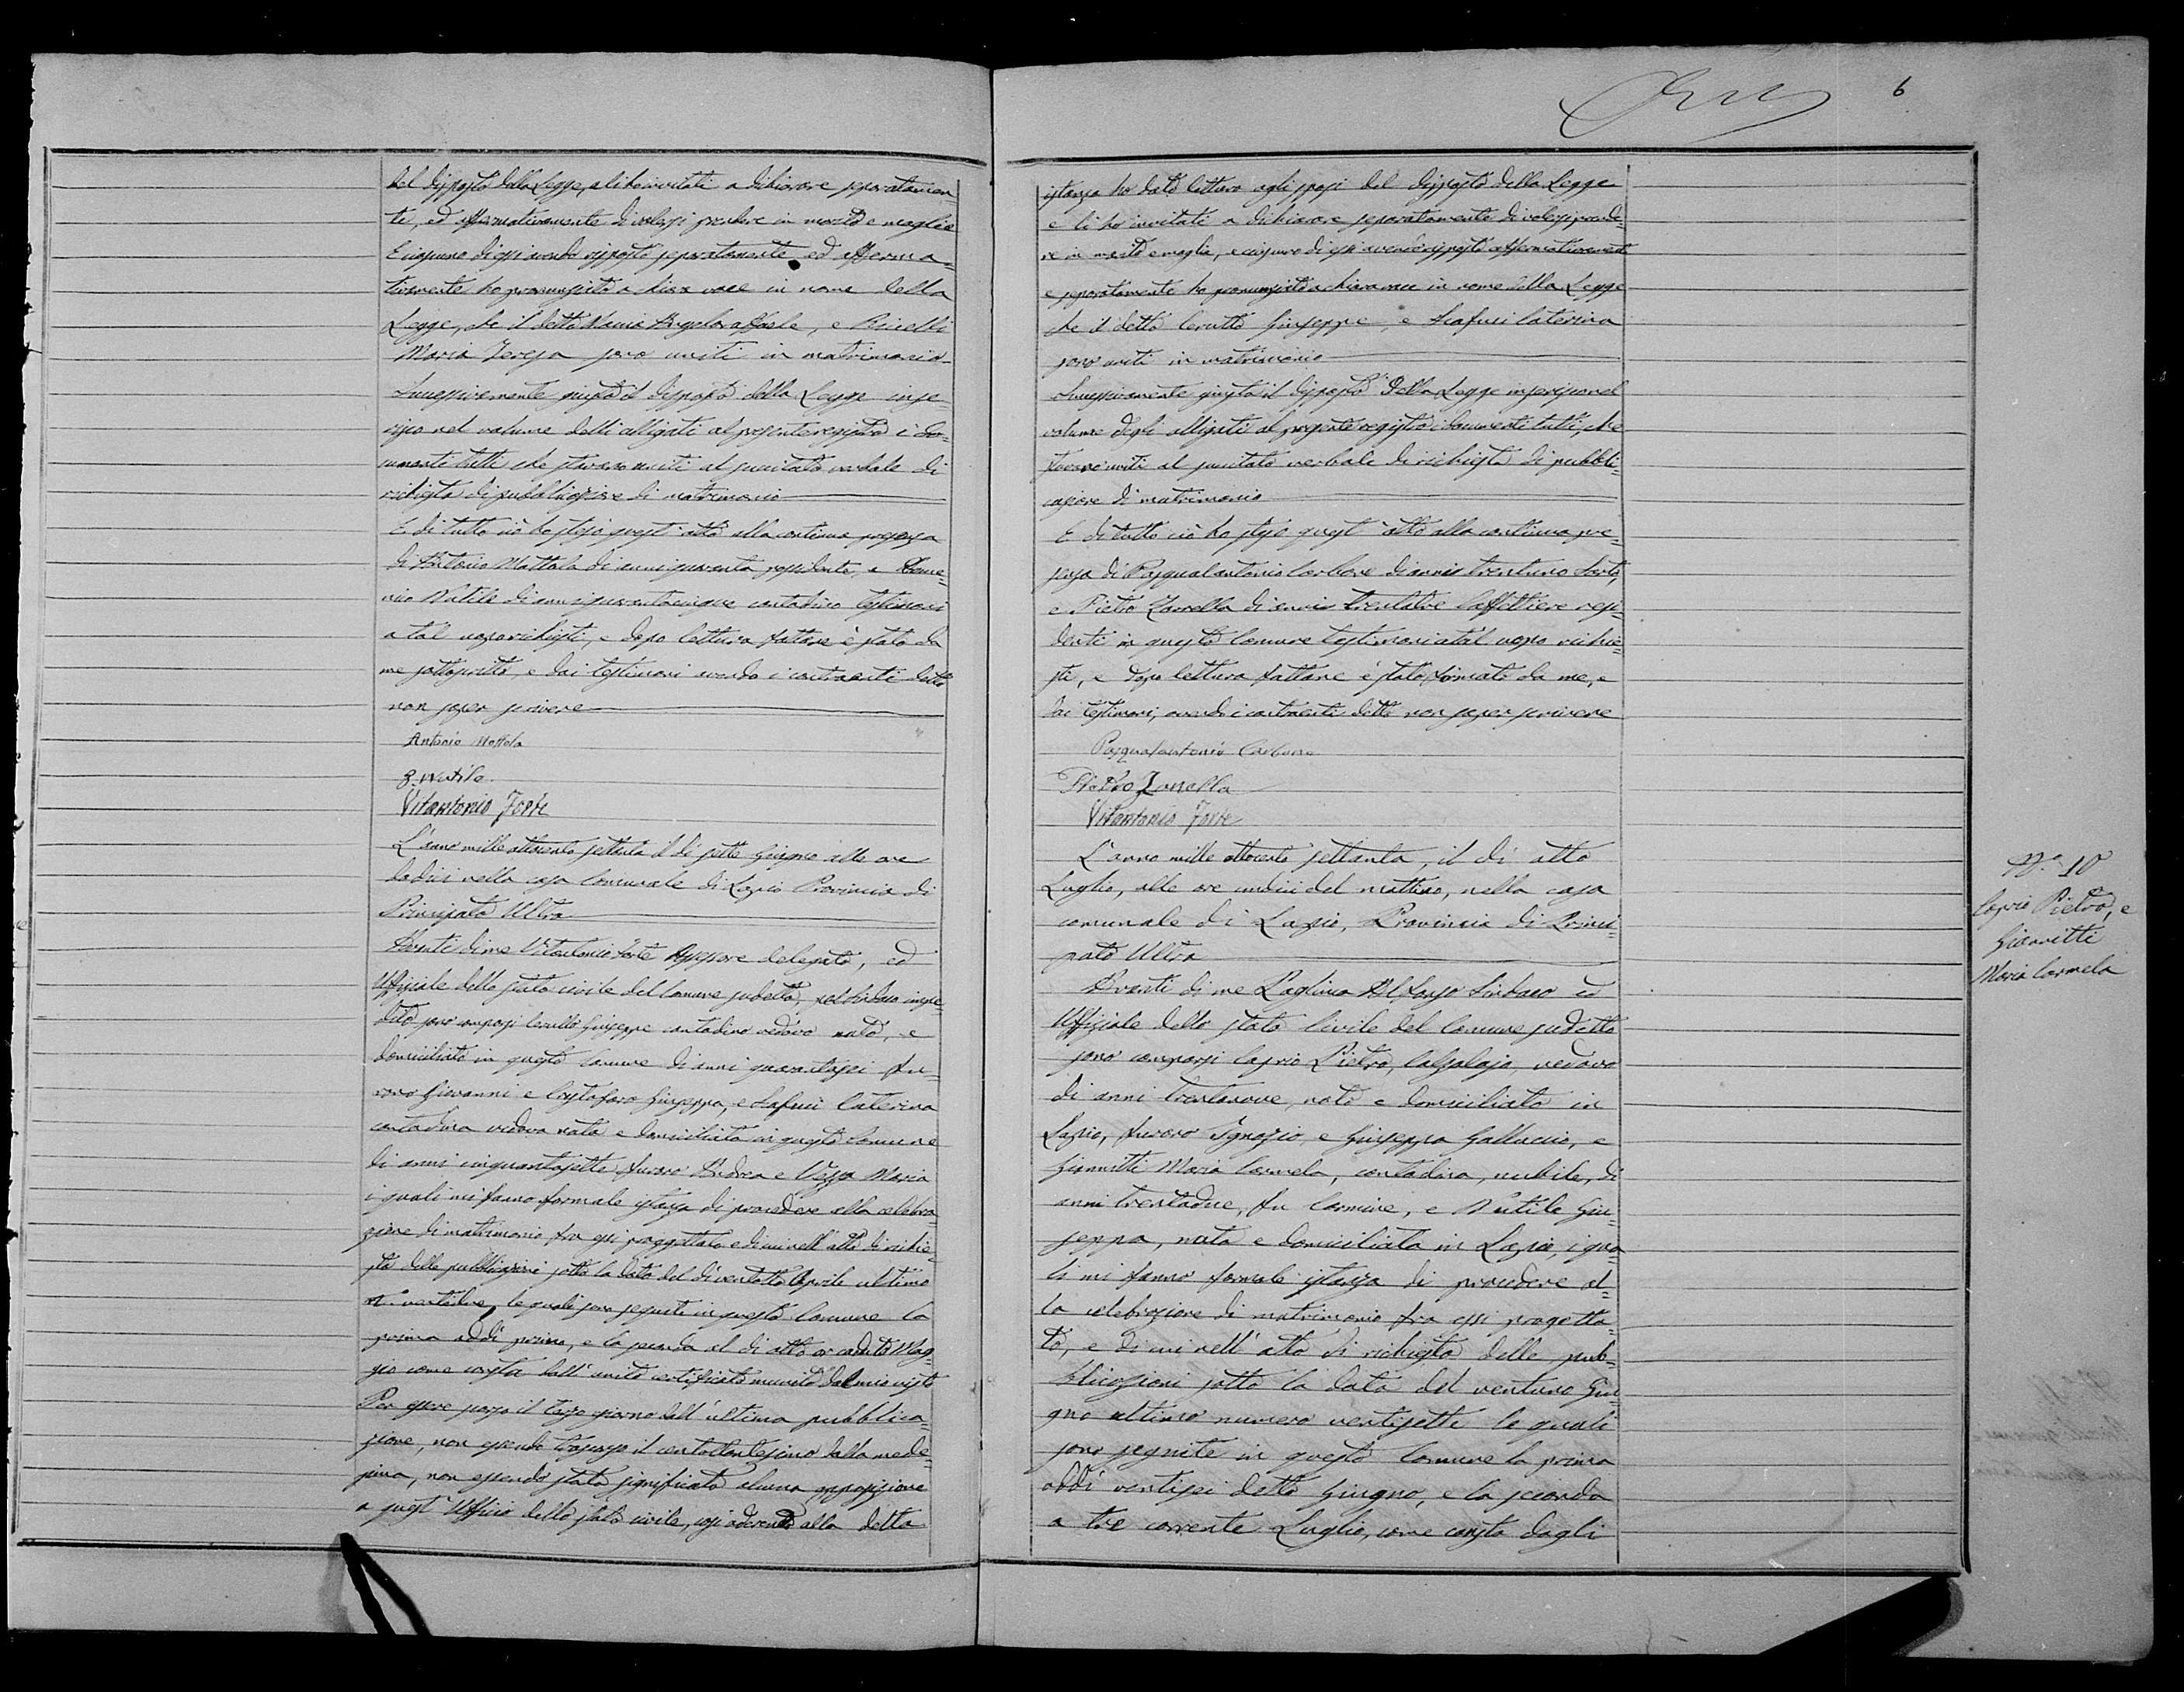 6
del disposto della Legge, e li ho invitati a dichiarare separatamen
te, ed affermativamente di volersi prendere in marito e moglie
E ciascuno di essi avendo risposto separatamente ed afferma=
tivamente ho pronunziato a chiara voce in nome della
Legge, che il detto Angelo Raffaele, e
Maria Teresa sono uniti in matrimonio
Successivamente giusta il disposto della Legge inse=
risco nel volume delli alligati al presente registro i do=
cumenti tutti che stavano uniti al precitato verbale di
richiesta di pubblicazione di matrimonio
E di tutto ciò ho steso quest'atto alla continua presenza
di Antonio Mattola di anni quaranta possidente, e
Nutile di anni quarantacinque contadino testimoni
a tal uopo richiesti, e dopo lettura fattane è stato da
me sottoscritto, e dai testimoni avendo i contraenti detto
non saper scrivere
Antonio Mattola
Nutile
Vitantonio Forte
L'anno mille ottocento settanta il dì sette Giugno alle ore
dodici nella casa Comunale di Lapio Provincia di
Principato Ultra
Avanti di me Vitantonio Forte Assessore delegato, ed
Uffiziale dello stato civile del Comune sudetto, pel Sindaco impe
dito sono comparsi Cerullo Giuseppe contadino vedovo nato, e
domiciliato in questo Comune di anni quarantasei fu=
rono Giovanni e Cristofaro Giuseppa, e Scafuci Caterina
contadina vedova nata e domiciliata in questo Comune
di anni cinquantasette furono Andrea e Maria
i quali mi fanno formale istanza di procedere alla celebra=
zione di matrimonio fra essi progettato e di cui nell'atto di richie=
sta delle pubblicazioni sotto la data del dì ventotto Aprile ultimo
n. ventidue, le quali sono seguite in questo Comune la
prima addì primo, e la seconda al dì otto or caduto Mag=
gio come consta dall'unito certificato munito dal mio visto
Per essere scorso il terzo giorno dall'ultima pubblica=
zione, non essendo trascorso il centottantesimo dalla mede=
sima, non essendo stata significata alcuna opposizione
a quest'Ufficio dello stato civile, così aderendo alla detta
istanza ho dato lettura agli sposi del disposto della Legge
e li ho invitati a dichiarare separatamente di volersi prende=
re in marito e moglie, e ciascuno di essi avendo risposto affermativamente
e separatamente ho pronunziato a chiara voce in nome della Legge
che il detto Cerullo Giuseppe, e Scafuci Caterina
sono uniti in matrimonio
Successivamente giusta il disposto della Legge inserisco nel
volume degli alligati al presente registro i documenti tutti, che
stavano uniti al precitato verbale di richiesta di pubbli=
cazione di matrimonio
E di tutto ciò ho steso quest'atto alla continua pre=
senza di Pasqualantonio Carbone di anni trentuno Sarto,
e Pietro Zarrella di anni trentatre Caffettiere resi=
denti in questo Comune testimoni a tal uopo richie=
sti, e dopo lettura fattane è stato firmato da me, e
dai testimoni, avendo i contraenti detto non saper scrivere
Pasqualantonio Carbone
Pietro Zarrella
Vitantonio Forte
L'anno mille ottocento settanta, il dì otto
Luglio, alle ore undici del mattino, nella casa
comunale di Lapio, Provincia di Princi=
pato Ultra
Avanti di me Alfonso Sindaco ed
Uffiziale dello stato Civile del Comune sudetto
sono comparsi Caprio Pietro, Calzolajo, vedovo
di anni trentanove, nato e domiciliato in
Lapio, furono Ignazio e Giuseppa Galluccio, e
Giannitti Maria Carmela, contadina, nubile, di
anni trentadue, fu Carmine, e Nutile Giu=
seppa, nata e domiciliata in Lapio, i qua
li mi fanno formale istanza di procedere al=
la celebrazione di matrimonio fra essi progetta=
to, e di cui nell'atto di richiesta delle pub=
blicazioni sotto la data del ventuno Giu=
gno ultimo numero ventisette le quali
sono seguite in questo Comune la prima
addì ventisei detto Giugno, e la seconda
a tre corrente Luglio, come consta dagli
N.º 10
Caprio Pietro, e
Giannitti
Maria Carmela